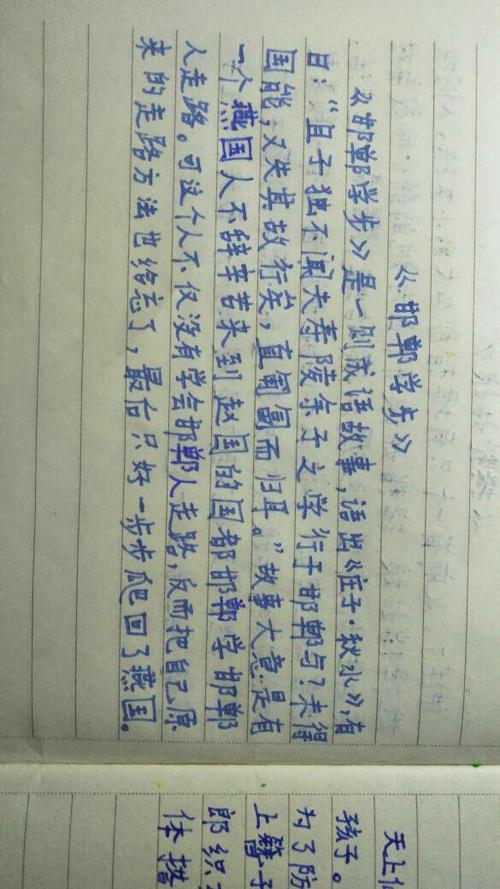 《邯郸学步》
《邯郸学步》是一则成语故事，语出《庄子·秋水》，有
曰："且子独不闻夫寿陵余子之学行于邯郸与？未得
国能，又失其故行矣，直匍匐而归耳。"故事大意是有
一个燕国人不辞辛苦来到赵国的国都邯郸学邯郸
人走路。可这个人不仅没有学会邯郸人走路，反而把自己原
来的走路方法也给忘了，最后只好一步步爬回了燕国。
天上
孩子。
为了防
上
郎织
体